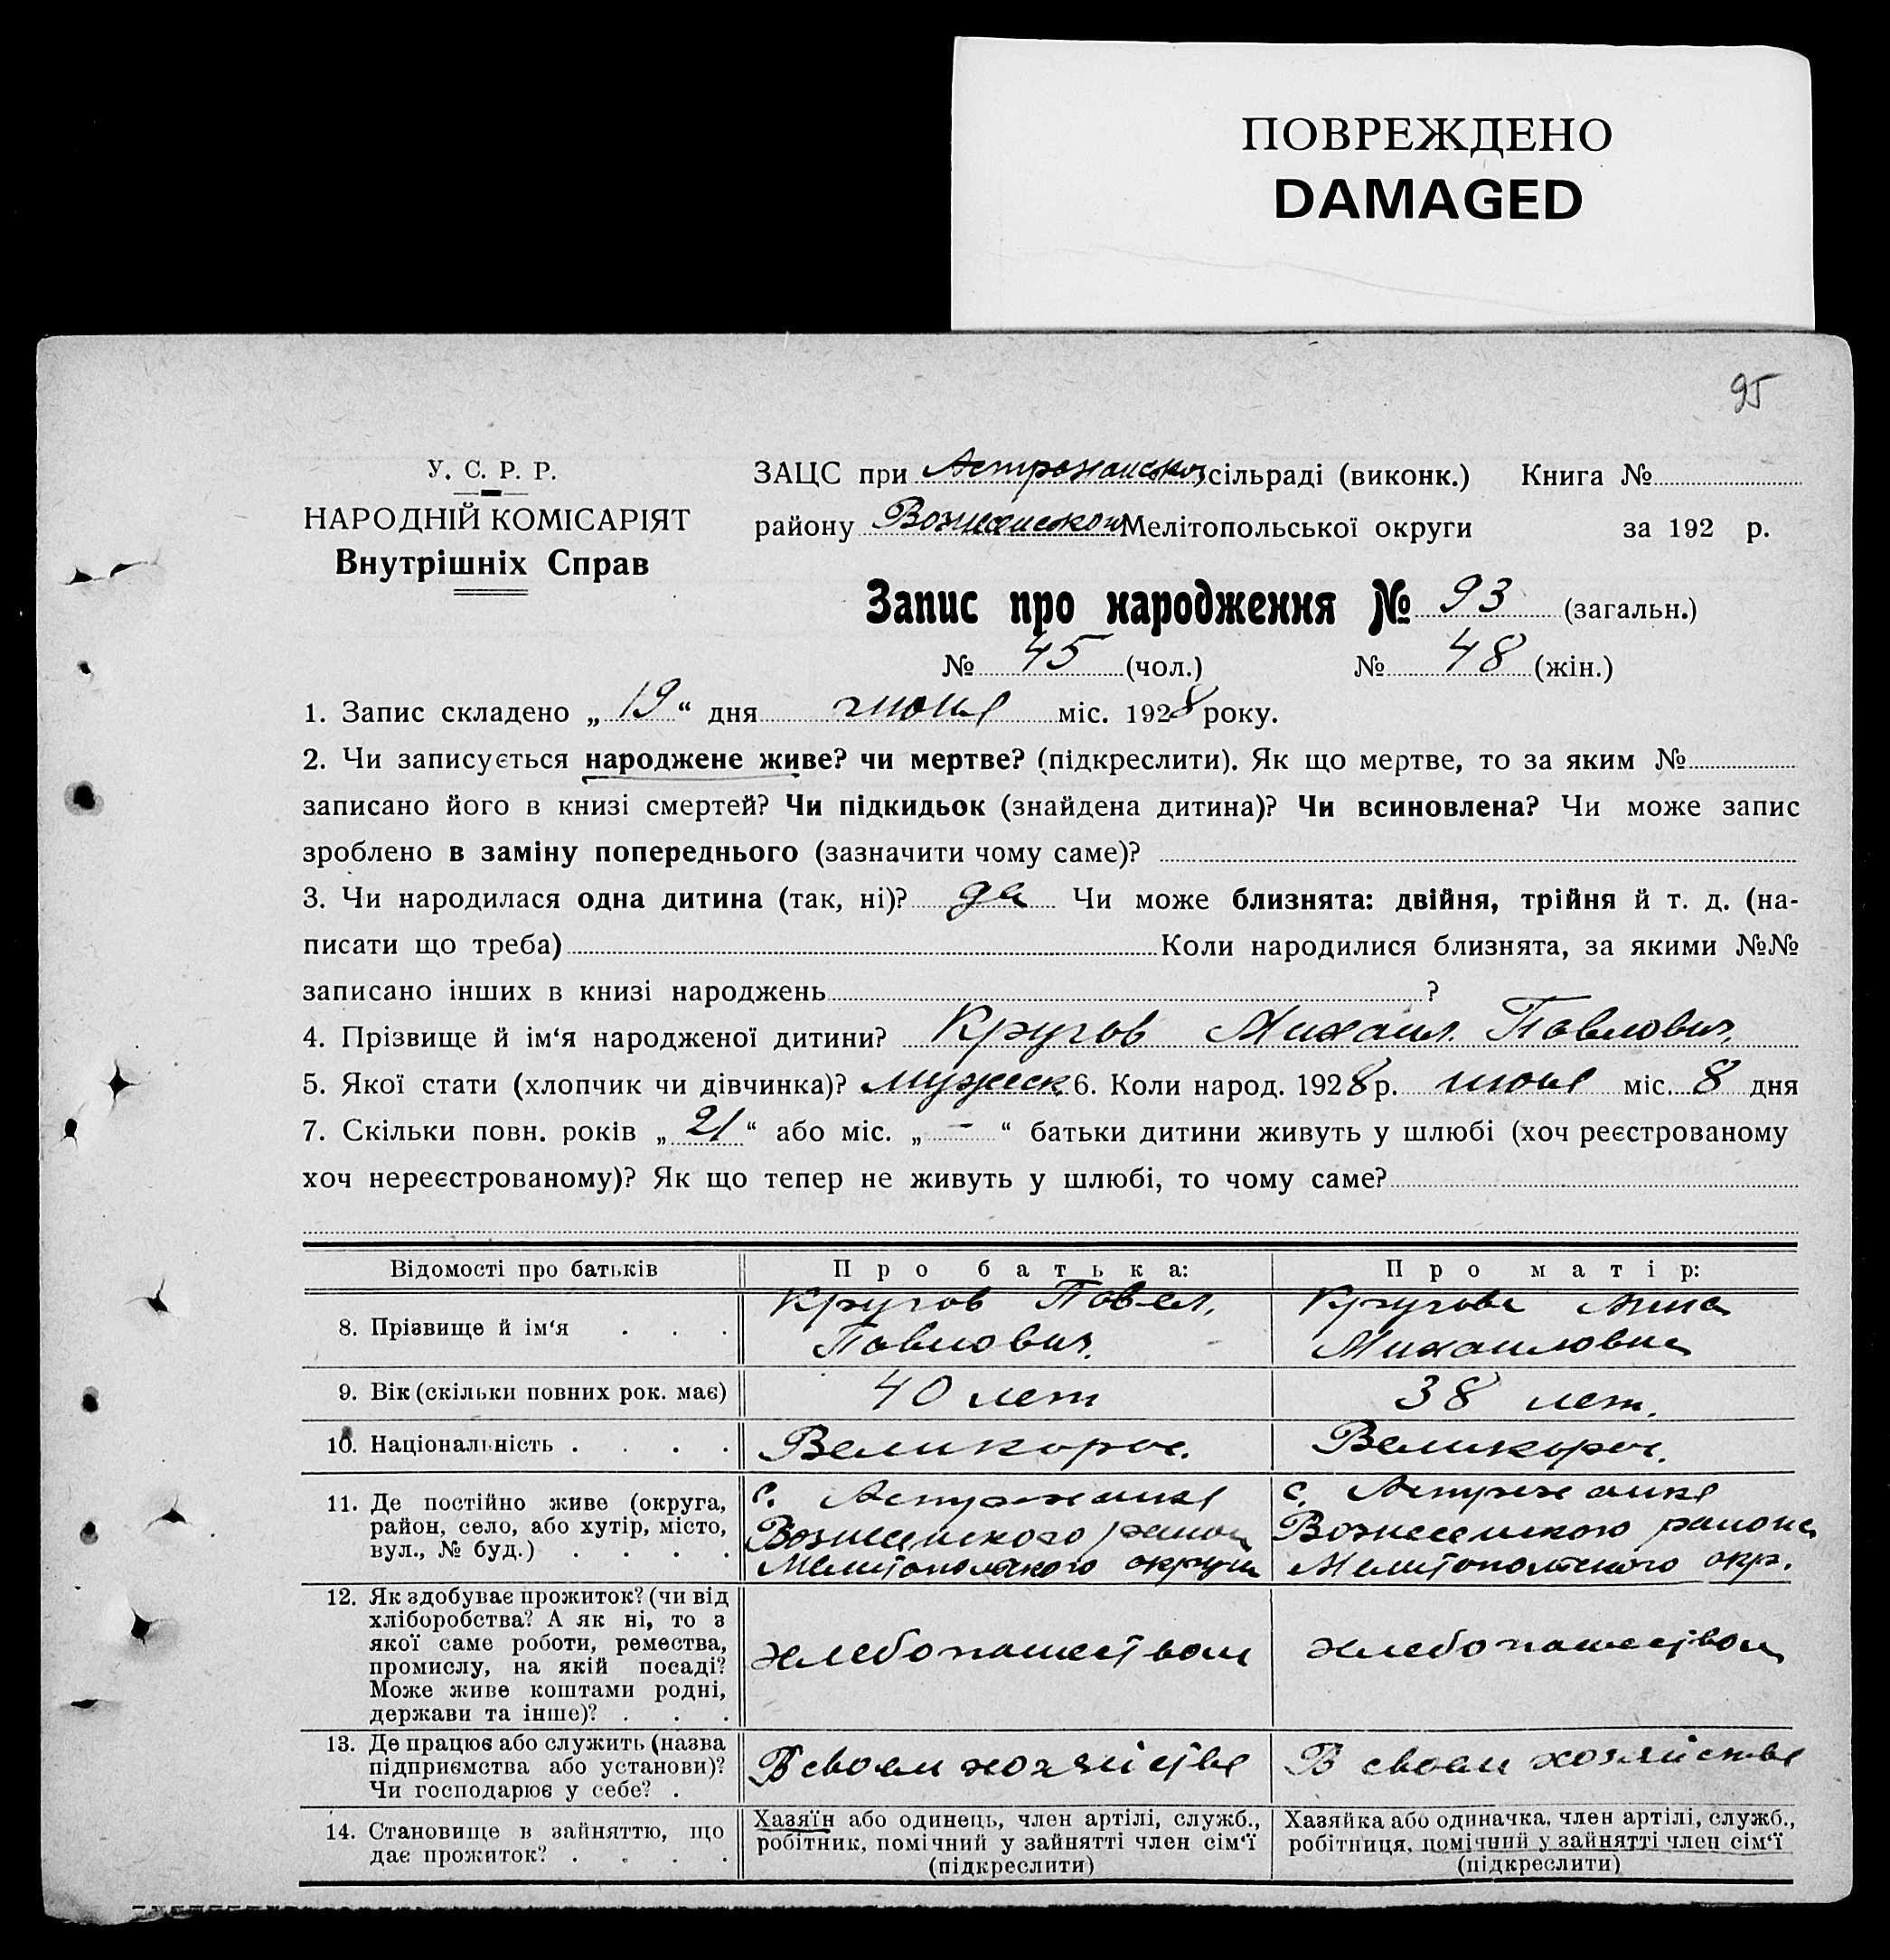 ПОВРЕЖДЕНО
DAMAGED
95
У. С. Р. Р.
НАРОДНІЙ КОМІСАРІЯТ
Внутрішніх Справ
ЗАЦС при Астраханской сільраді (виконк.) Книга №
району Вознесенского Мелітопольської округи за 192 р.
Запис про народження № 93 (загальн.)
№ 45 (чол.) № 48 (жін.)
1. Запис складено „ 19 “ дня июня міс. 1928 року.
2. Чи записується народжене живе? чи мертве? (підкреслити). Як що мертве, то за яким №
записано його в книзі смертей? Чи підкидьок (знайдена дитина)? Чи всиновлена? Чи може запис
зроблено в заміну попереднього (зазначити чому саме)?
3. Чи народилася одна дитина (так, ні)? да Чи може близнята: двійня, трійня й т. д. (на-
писати що треба) Коли народилися близнята, за якими №№
записано інших в книзі народжень ?
4. Прізвище й ім‘я народженої дитини? Кругов Михаил Павлович.
5. Якої стати (хлопчик чи дівчинка)? мужеск. 6. Коли народ. 1928 р. июня міс. 8 дня
7. Скільки повн. років „ 21 “ або міс. „ - “ батьки дитини живуть у шлюбі (хоч реєстрованому
хоч нереєстрованому)? Як що тепер не живуть у шлюбі, то чому саме?
Відомості про батьків Про батька: Про матір:
8. Прізвище й ім‘я . . . Кругов Павел. Кругова Анна
Павлович. Михаиловна
9. Вік (скільки повних рок. має) 40 лет 38 лет.
10. Національність . . . . Великорос. Великорос.
11. Де постійно живе (округа, с. Астраханка с. Астраханка
район, село, або хутір, місто, Вознесенского района Вознесенского района
вул., № буд.) . . . . Мелитопольского округа Мелитопольского окр.
12. Як здобуває прожиток? (чи від
хліборобства? А як ні, то з
якої саме роботи, ремества, хлебопашеством хлебопашеством
промислу, на якій посаді?
Може живе коштами родні,
держави та інше)? . . .
13. Де працює або служить (назва
підприємства або установи)? В своем хозяйстве В своем хозяйстве
Чи господарює у себе? .
14. Становище в зайняттю, що Хазяїн або одинець, член артілі, служб., Хазяйка або одиначка, член артілі, служб.,
дає прожиток? . . . . робітник, помічний у зайнятті член сім‘ї робітниця, помічний у зайнятті член сім‘ї
(підкреслити) (підкреслити)